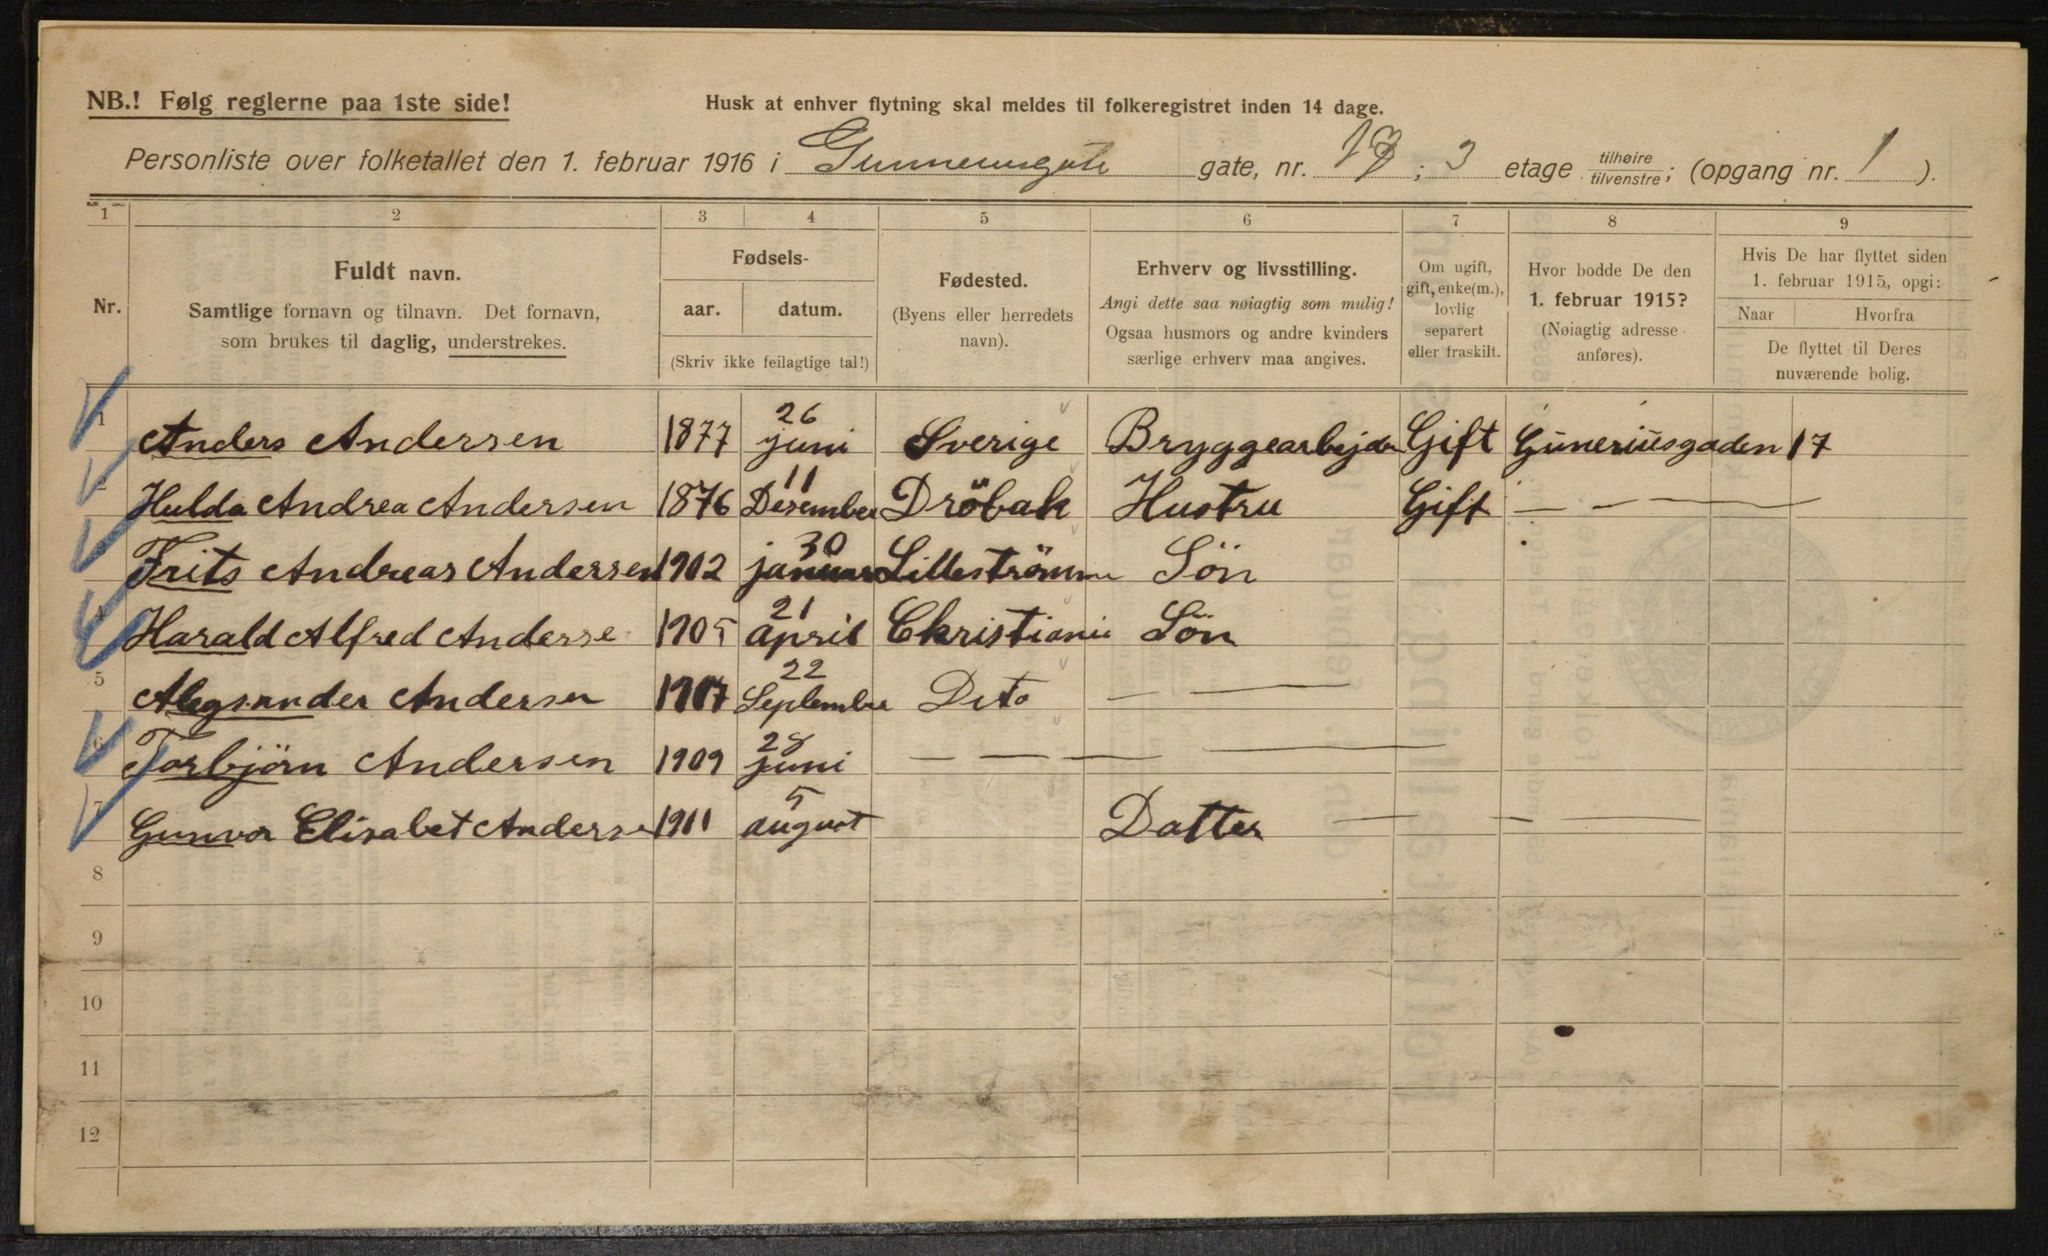 NB.! Følg reglerne paa 1ste side!
Husk at enhver flytning skal meldes til folkeregistret inden 14 dage.
Personliste over folketallet den 1. februar 1916 i Gunneriusgate gate, nr. 17; 3 etage tilhøire tilvenstre; (opgang nr. 1).
1 2 3 4 5 6 7 8 9
Nr.
Fuldt navn.
Samtlige fornavn og tilnavn. Det fornavn,
som brukes til daglig, understrekes.
Fødsels-
aar. datum.
(Skriv ikke feilagtige tal!)
Fødested.
(Byens eller herredets
navn).
Erhverv og livsstilling.
Angi dette saa nøiagtig som mulig!
Ogsaa husmors og andre kvinders
særlige erhverv maa angives.
Om ugift,
gift, enke(m.),
lovlig
separert
eller fraskilt.
Hvor bodde De den
1. februar 1915?
(Nøiagtig adresse
anføres).
Hvis De har flyttet siden
1. februar 1915, opgi:
Naar Hvorfra
De flyttet til Deres
nuværende bolig.
1 Anders Andersen 1877 26 juni Sverige Bryggearbejder Gift Guneriusgaden 17
2 Hulda Andrea Andersen 1876 11 Desember Dröbak Hustru Gift — — —
Frits Andreas Andersen 1902 30 januar Lilleströmm Sön
4 Harald Alfred Anderse 1905 21 april Christiania Sön
5 Alegsander Andersen 1907 22 September Dito — —
6 Torbjörn Andersen 1909 28 juni — — — —
7 Gunvor Elisabet Andersen 1911 5 august Datter — — —
8
9
10
11
12